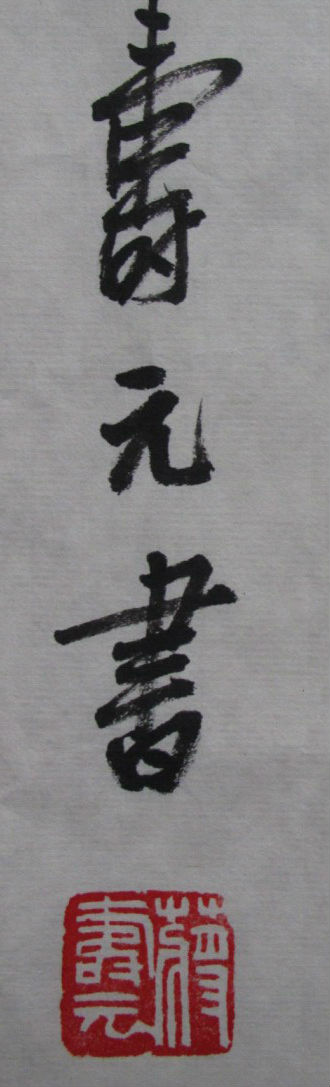 壽元書
蔣
壽元